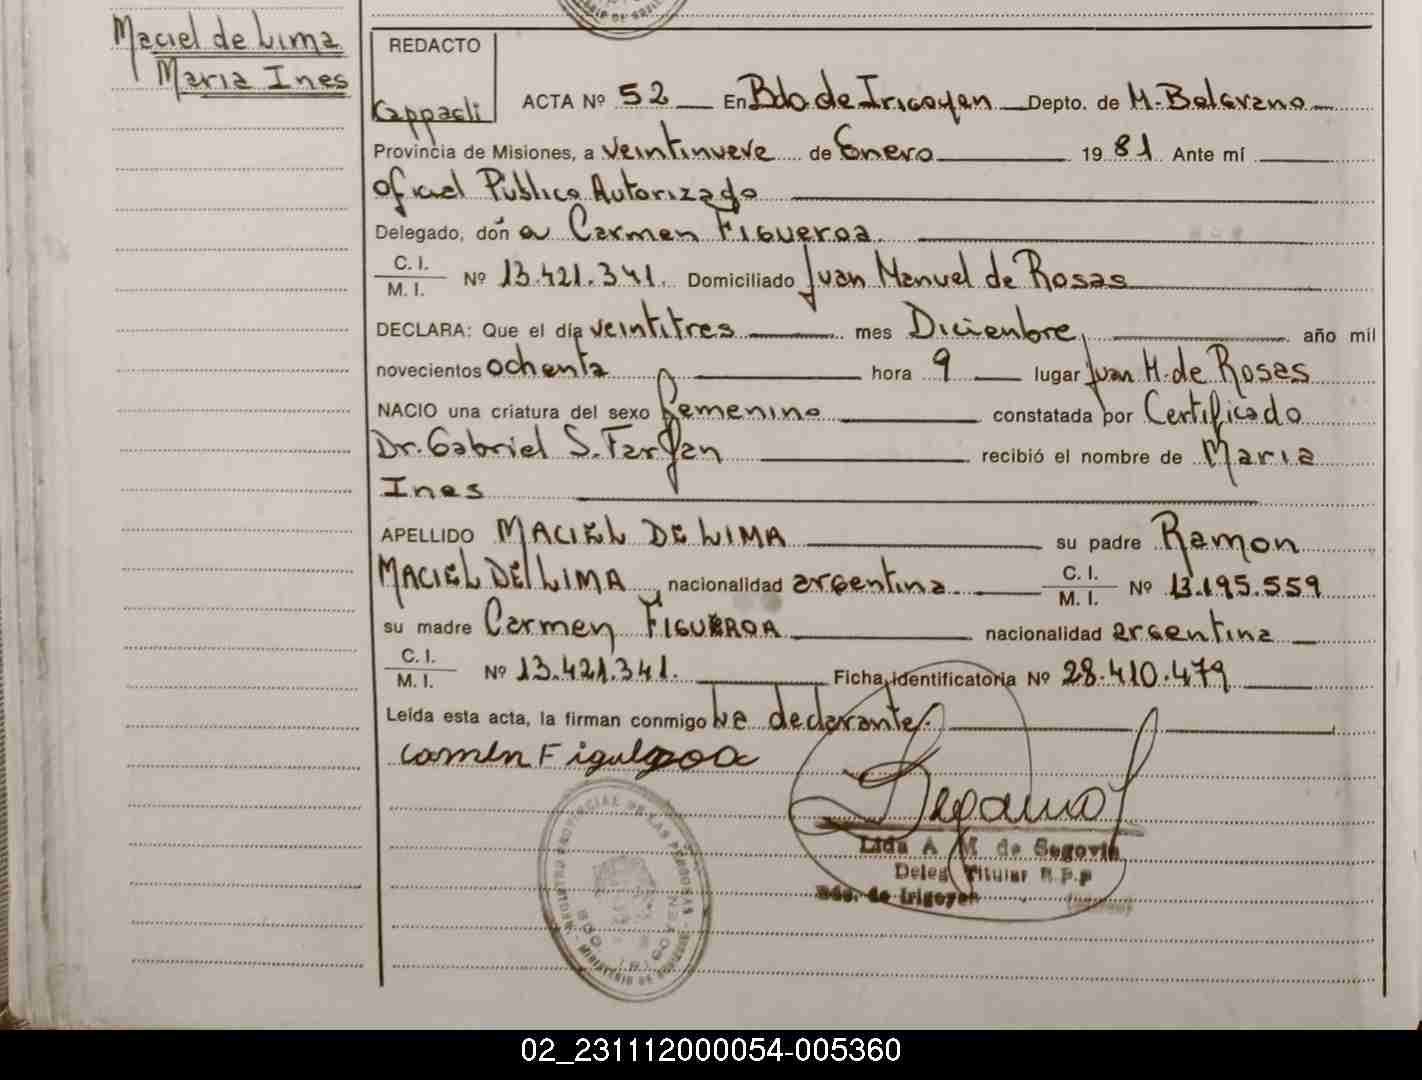 Maciel de Lima
Maria Ines
REDACTO
Cappaeli
ACTA Nº 52 En Bdo. de Irigoyen Depto. de M. Belgrano
Provincia de Misiones, a veintinueve de Enero 19 81 Ante mí
Oficial Publico Autorizado
Delegado, doña Carmen Figueroa
C. I.
M. I. Nº 13.421.341. Domiciliado Juan Manuel de Rosas
DECLARA: Que el día veintitres mes Diciembre, año mil
novecientos ochenta hora 9 lugar Juan M. de Rosas
NACIO una criatura del sexo femenino constatada por Certificado
Dr. Gabriel S. Farfan recibió el nombre de Maria
Ines
APELLIDO MACIEL DE LIMA su padre Ramon
MACIEL DE LIMA, nacionalidad argentina C. I.
M. I. Nº 13.195.559
su madre Carmen FIGUEROA nacionalidad argentina
C. I.
M. I. Nº 13.421.341. Ficha Identificatoria Nº 28.410.479
Leída esta acta, la firman conmigo la declarante.
Carmen Figueroa
Lida A. M. de Segovia
Deleg. Titular R.P.P
Bdo. de Irigoyen
REGISTRO PROVINCIAL DE LAS PERSONAS
BDO. IRIGOYEN
02_231112000054-005360